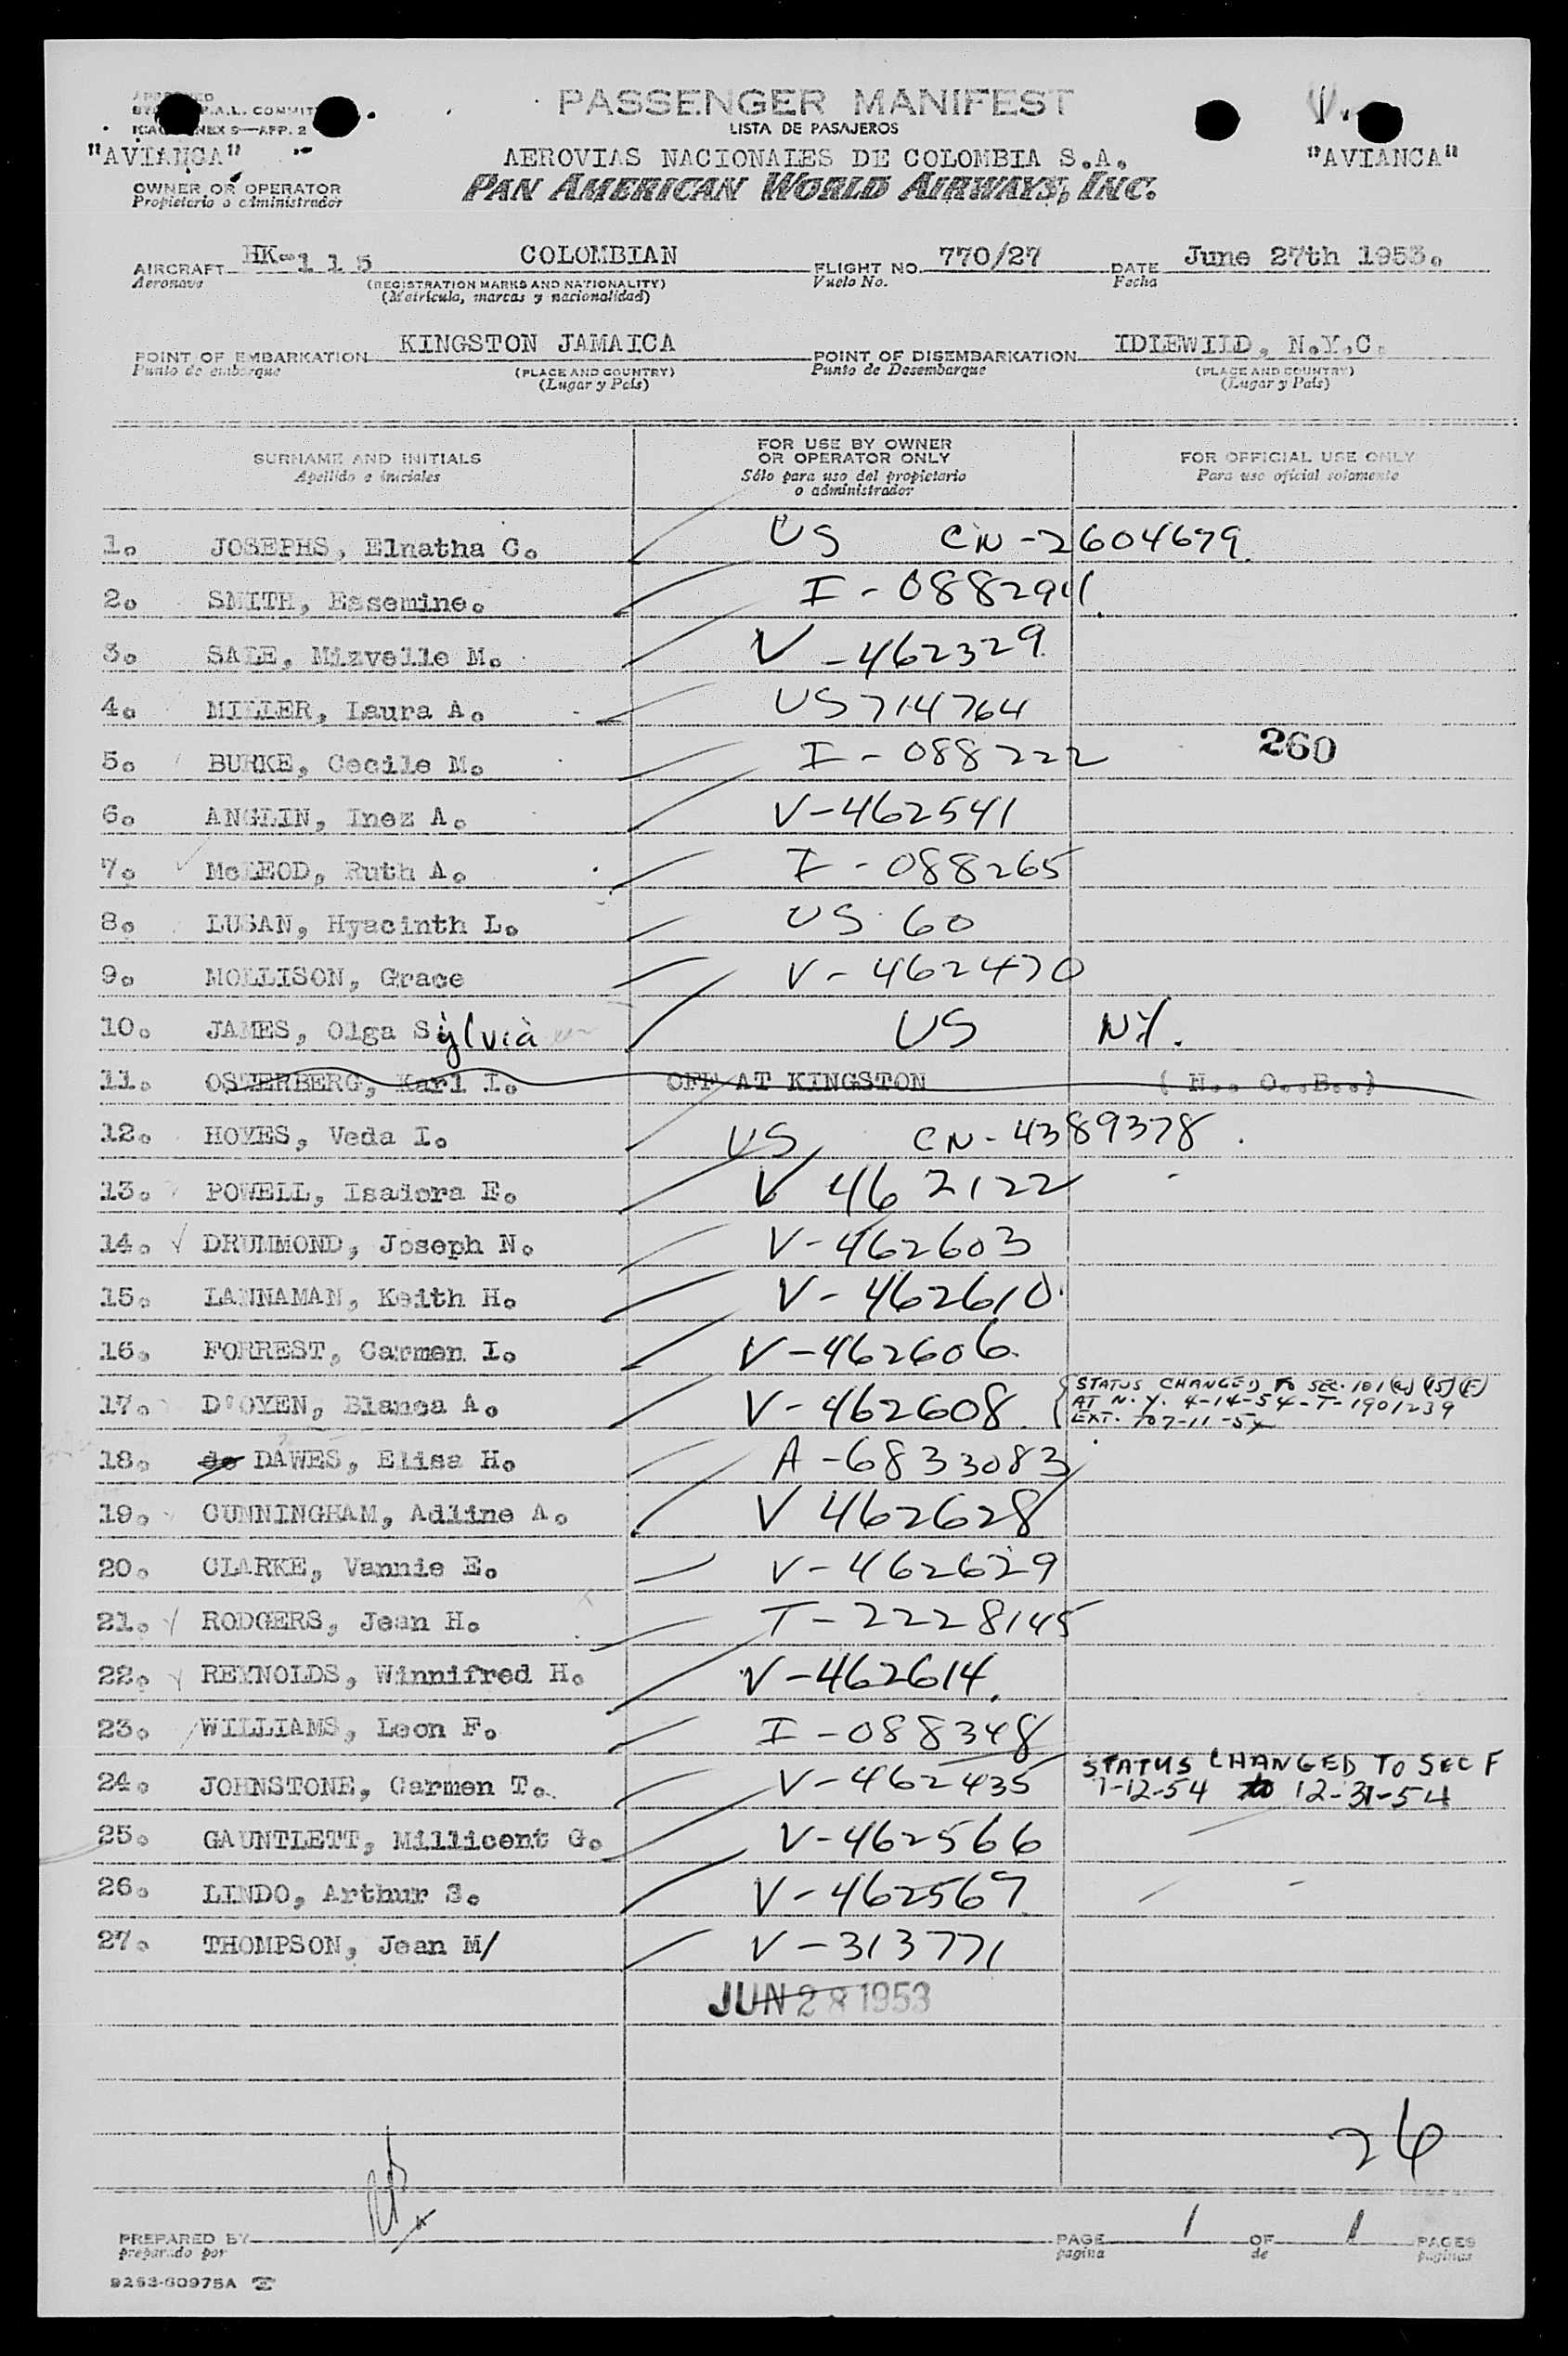 PASSENGER MANIFEST
LISTA DE PASAJEROS
"AVIANCA"
AEROVIAS NACIONALES DE COLOMBIA S.A.
"AVIANCA"
OWNER OR OPERATOR
Propietario o administrador
PAN AMERICAN WORLD AIRWAYS, INC.
AIRCRAFT HK-115 COLOMBIAN FLIGHT NO. 770/27 DATE June 27th 1953.
Aeronave (REGISTRATION MARKS AND NATIONALITY) Vuelo No. Fecha
(Matrícula, marcas y nacionalidad)
POINT OF EMBARKATION KINGSTON JAMAICA POINT OF DISEMBARKATION IDLEWILD, N.Y.C.
Punto de embarque (PLACE AND COUNTRY) Punto de Desembarque (PLACE AND COUNTRY)
(Lugar y País) (Lugar y País)
SURNAME AND INITIALS FOR USE BY OWNER OR OPERATOR ONLY FOR OFFICIAL USE ONLY
Apellido e iniciales Sólo para uso del propietario o administrador Para uso oficial solamente
1. JOSEPHS, Elnatha C. US CN-2604679
2. SMITH, Essemine. I-0882911
3. SALE, Mizvelle M. V-462329
4. MILLER, Laura A. US 714764
5. BURKE, Cecile M. I-088222 260
6. ANGLIN, Inez A. V-462541
7. McLEOD, Ruth A. I-088265
8. LUSAN, Hyacinth L. US 60
9. MOLLISON, Grace V-462470
10. JAMES, Olga Sylvia US NY.
11. OSTERBERG, Karl I. OFF AT KINGSTON ( N.. O..B..)
12. HOYES, Veda I. US CN-4389378
13. POWELL, Isadora E. V 462122
14. DRUMMOND, Joseph N. V-462603
15. LANNAMAN, Keith H. V-462610
16. FORREST, Carmen I. V-462606
17. D'OYEN, Blanca A. V-462608 STATUS CHANGED TO SEC. 101(a)(15)(F)
AT N.Y. 4-14-54-T-1901239
EXT. TO 7-11-54
18. de DAWES, Elisa H. A-6833083
19. CUNNINGHAM, Adline A. V 462628
20. CLARKE, Vannie E. V-462629
21. RODGERS, Jean H. T-2228145
22. REYNOLDS, Winnifred H. V-462614
23. WILLIAMS, Leon F. I-088348
24. JOHNSTONE, Carmen T. V-462435 STATUS CHANGED TO SEC F
1-12-54 to 12-31-54
25. GAUNTLETT, Millicent G. V-462566
26. LINDO, Arthur S. V-462567
27. THOMPSON, Jean M/ V-313771
JUN 28 1953
26
PREPARED BY PAGE 1 OF 1 PAGES
preparado por pagina de paginas
9263-60975A